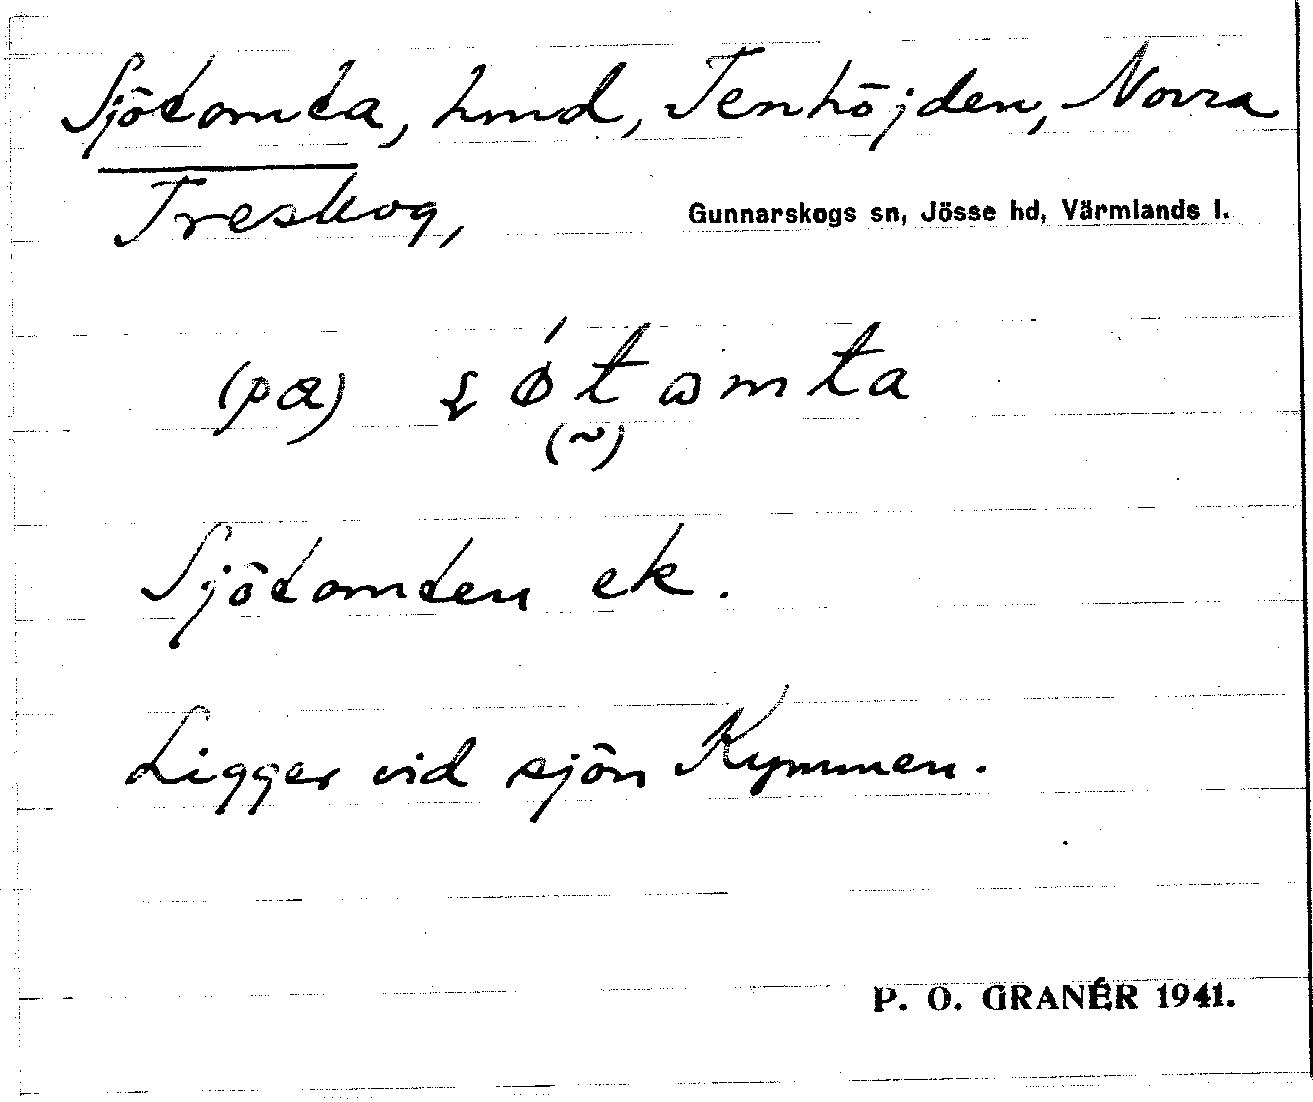 Sjötomta, hmd, Tenhöjden, Norra
Treskog,
Gunnarskogs sn, Jösse hd, Värmlands l.
(pα) ʂǿtɷmta
(~)
Sjötomten ek.
Ligger vid sjön Kymmen.
P. O. GRANÉR 1941.